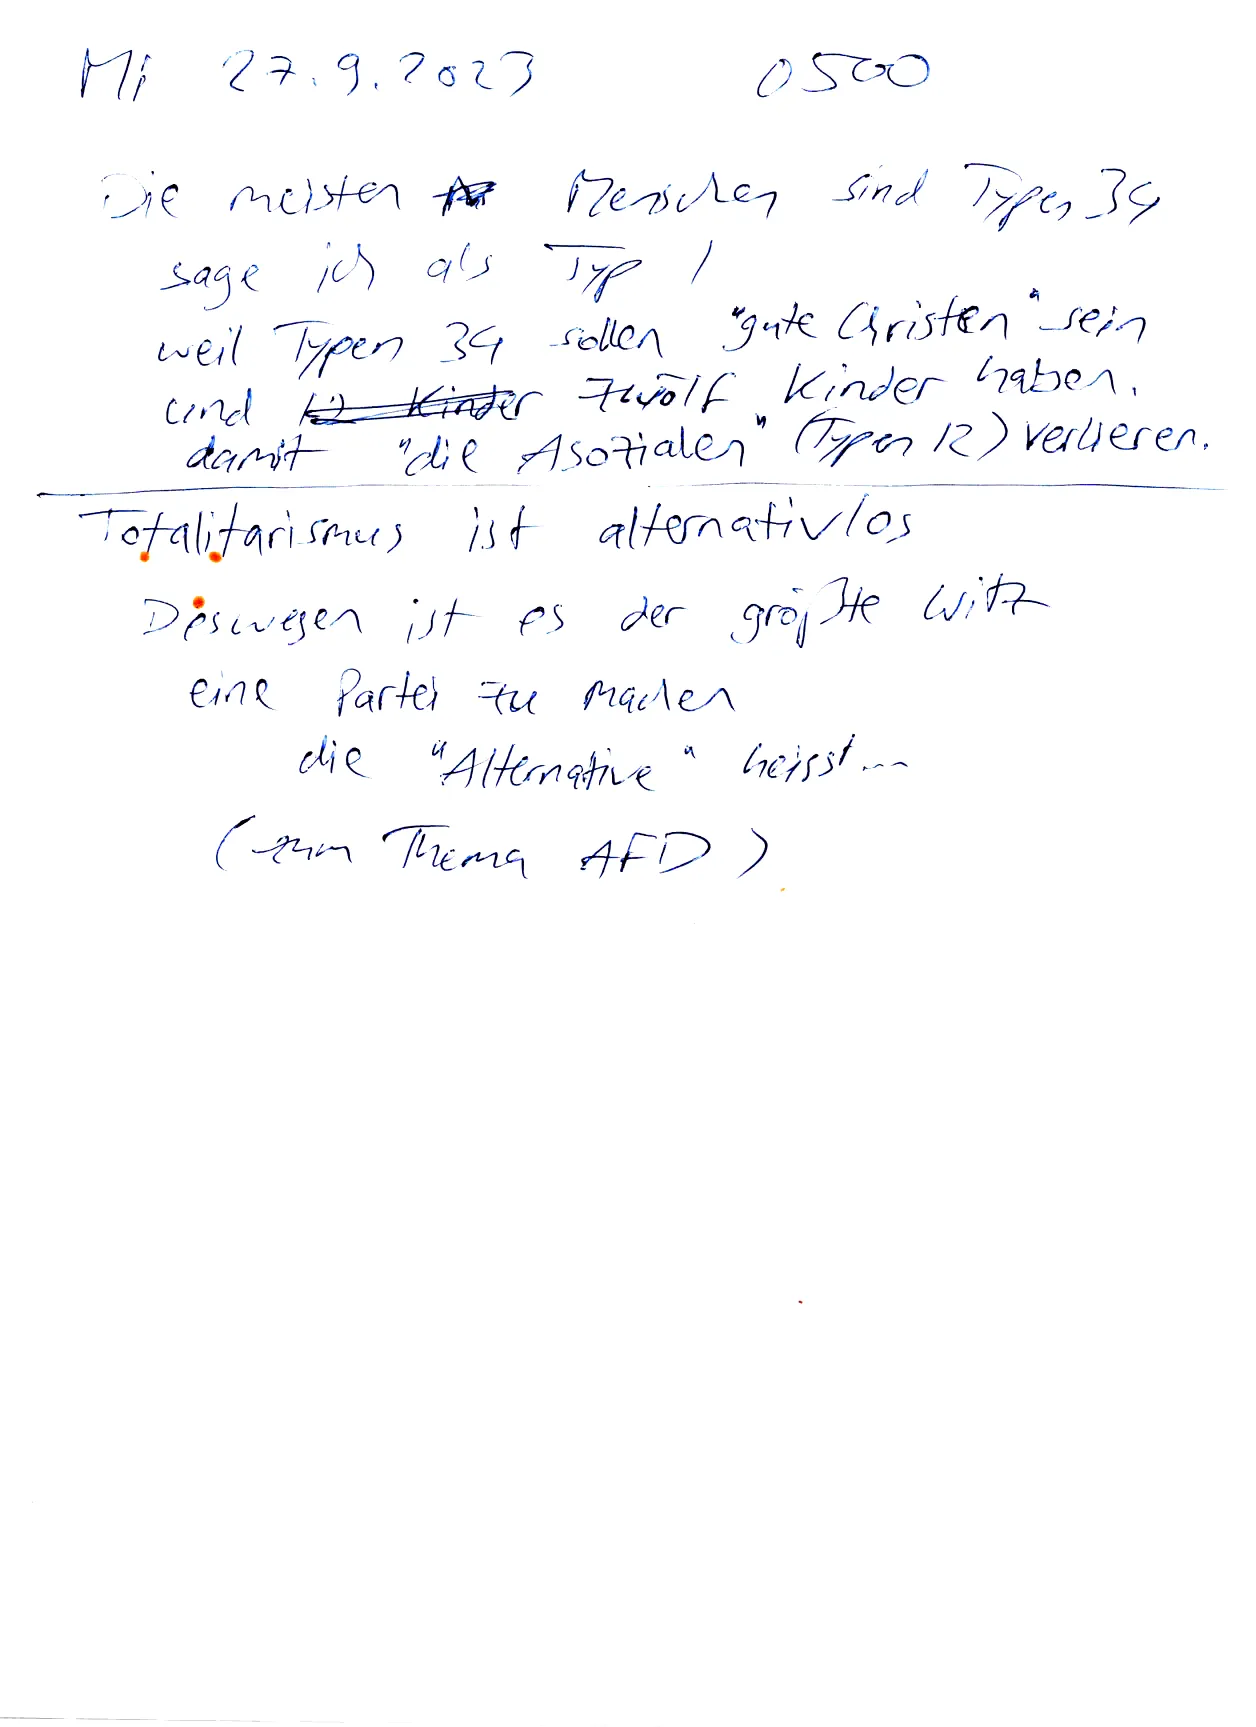 Mi 27.9.2023 0500
Die meisten Menschen sind Typen 34
sage ich als Typ 1
weil Typen 34 sollen "gute Christen" sein
und 12 Kinder zwölf Kinder haben,
damit "die Asozialen" (Typen 12) verlieren.
Totalitarismus ist alternativlos
Deswegen ist es der größte Witz
eine Partei zu machen
die "Alternative" heisst...
(zum Thema AFD)